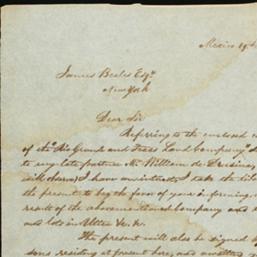 Mexico 19th
James Beales Esqr.
New York
Dear Sir
Referring to the enclosed
of the Rio Grande and Texas Land Company
to my late partner Mr. William de Drusina,
I have an interest, I take the
the present to beg the favor of your informing
result of the abovementioned Company and
and lots in
The present will also be signed
sons residing at present here, and